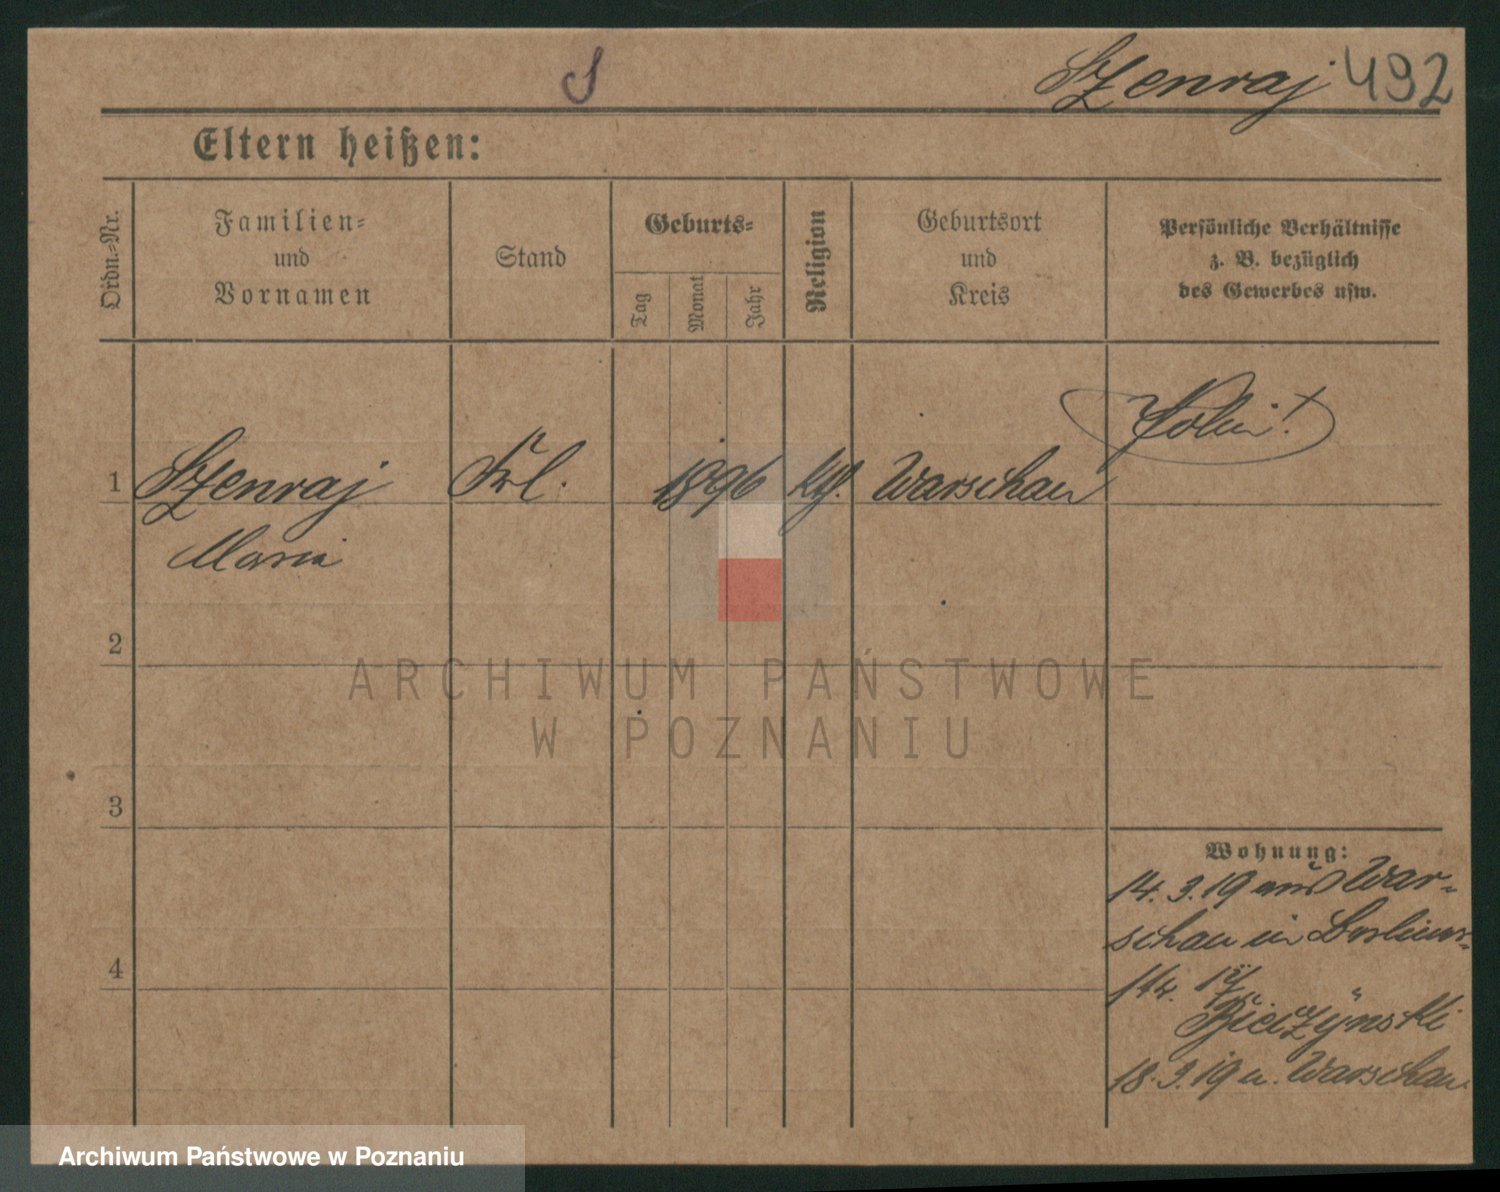 S
Szenraj 492
Eltern heißen:
Ordn.-Nr.
Familien-
und
Vornamen
Stand
Geburts-
Tag
Monat
Jahr
Religion
Geburtsort
und
Kreis
Persönliche Verhältnisse
z. B. bezüglich
des Gewerbes usw.
Polin!
1 Szenraj Frl. 1896 Warschau
Maria
2
ARCHIWUM PAŃSTWOWE
W POZNANIU
3
Wohnung:
14.3.19 aus War-
schau in Berliner-
4
str.
18.3.19 n. Warschau
Archiwum Państwowe w Poznaniu